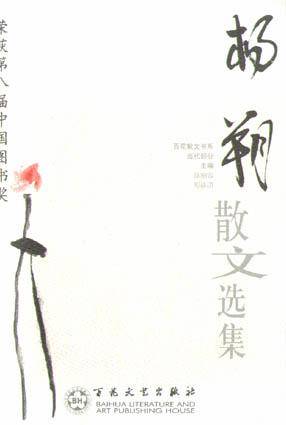 荣获第八届中国图书奖
杨朔
散文选集
百花散文书系
当代部分
主编
BH
百花文艺出版社
BAIHUA LITERATURE AND
ART PUBLISHING HOUSE